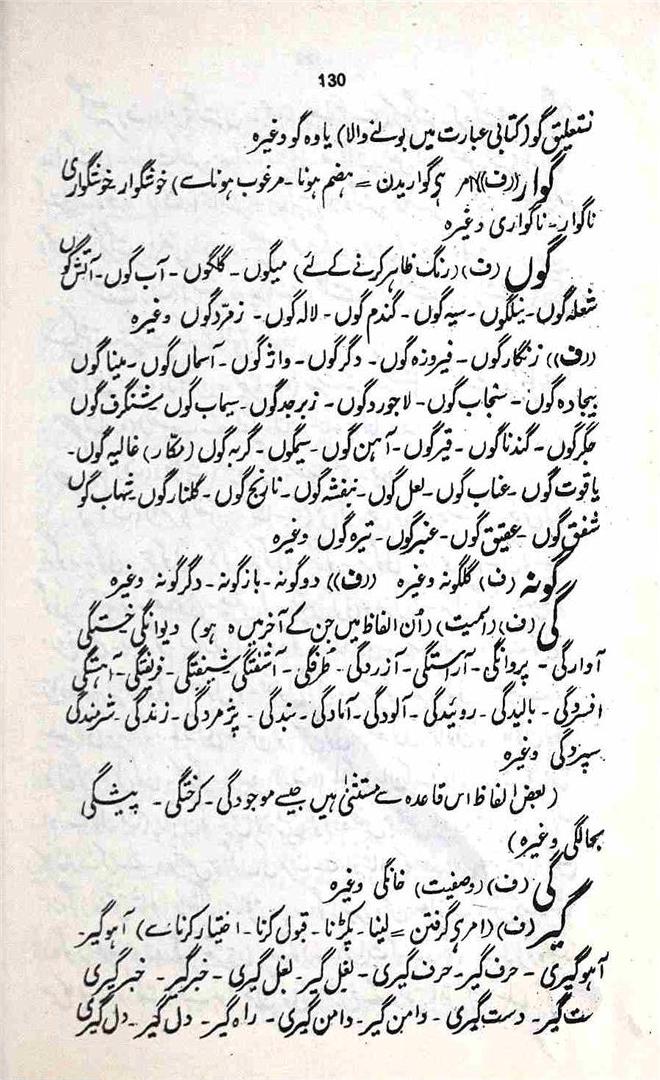 130
نستعلیق گو (کتابی عبارت میں بولنے والا) یاوہ گو وغیرہ
گوار ((ف)) (امر ہے گواریدن = ہضم ہونا۔ مرغوب ہونا سے) خوشگوار خوشگواری
ناگوار۔ ناگواری وغیرہ
گوں (ف) (رنگ ظاہر کرنے کے لئے) میگوں۔ گلگوں۔ آب گوں۔ آتش گوں
شعلہ گوں۔ نیلگوں۔ سیہ گوں۔ گندم گوں۔ لالہ گوں۔ زمرّد گوں وغیرہ
((ف)) زنگار گوں۔ فیروزہ گوں۔ دگر گوں۔ واژگوں۔ آسماں گوں۔ مینا گوں
بیجادہ گوں۔ سنجاب گوں۔ لاجورد گوں۔ زبرجد گوں۔ سیماب گوں شنگرف گوں
جگر گوں۔ گندنا گوں۔ قیر گوں۔ آہن گوں۔ سیمگوں۔ گربہ گوں (مکّار) غالیہ گوں۔
یاقوت گوں۔ عناب گوں۔ لعل گوں۔ بنفشہ گوں۔ نارنج گوں۔ گلنار گوں شہاب گوں
شفق گوں۔ عقیق گوں۔ عنبر گوں۔ تیرہ گوں وغیرہ
گونہ (ف) گلگونہ وغیرہ ((ف)) دوگونہ۔ بازگونہ۔ دگرگونہ وغیرہ
گی (ف) (اسمیت) (اُن الفاظ میں جن کے آخر میں ہ ہو) دیوانگی خستگی
آوارگی۔ پروانگی۔ آراستگی۔ آزردگی۔ طرفگی۔ آشفتگی شیفتگی۔ فریفتگی۔ آہستگی
افسردگی۔ بالیدگی۔ روئیدگی۔ آلودگی۔ آمادگی۔ بندگی۔ پژمردگی۔ زندگی۔ شرمندگی
سپردگی وغیرہ
(بعض الفاظ اس قاعدہ سے مستثنیٰ ہیں جیسے موجودگی۔ کرختگی۔ پیشگی
بحالگی وغیرہ)
گی (ف) (وصفیت) خانگی وغیرہ
گیر (ف) (امر ہے گرفتن = لینا۔ پکڑنا۔ قبول کرنا۔ اختیار کرنا سے) آہو گیر۔
آہو گیری۔ حرف گیر۔ حرف گیری۔ بغل گیر۔ بغل گیری۔ خبر گیر۔ خبر گیری
ست گیر۔ دست گیری۔ دامن گیر۔ دامن گیری۔ راہ گیر۔ دل گیر۔ دل گیری